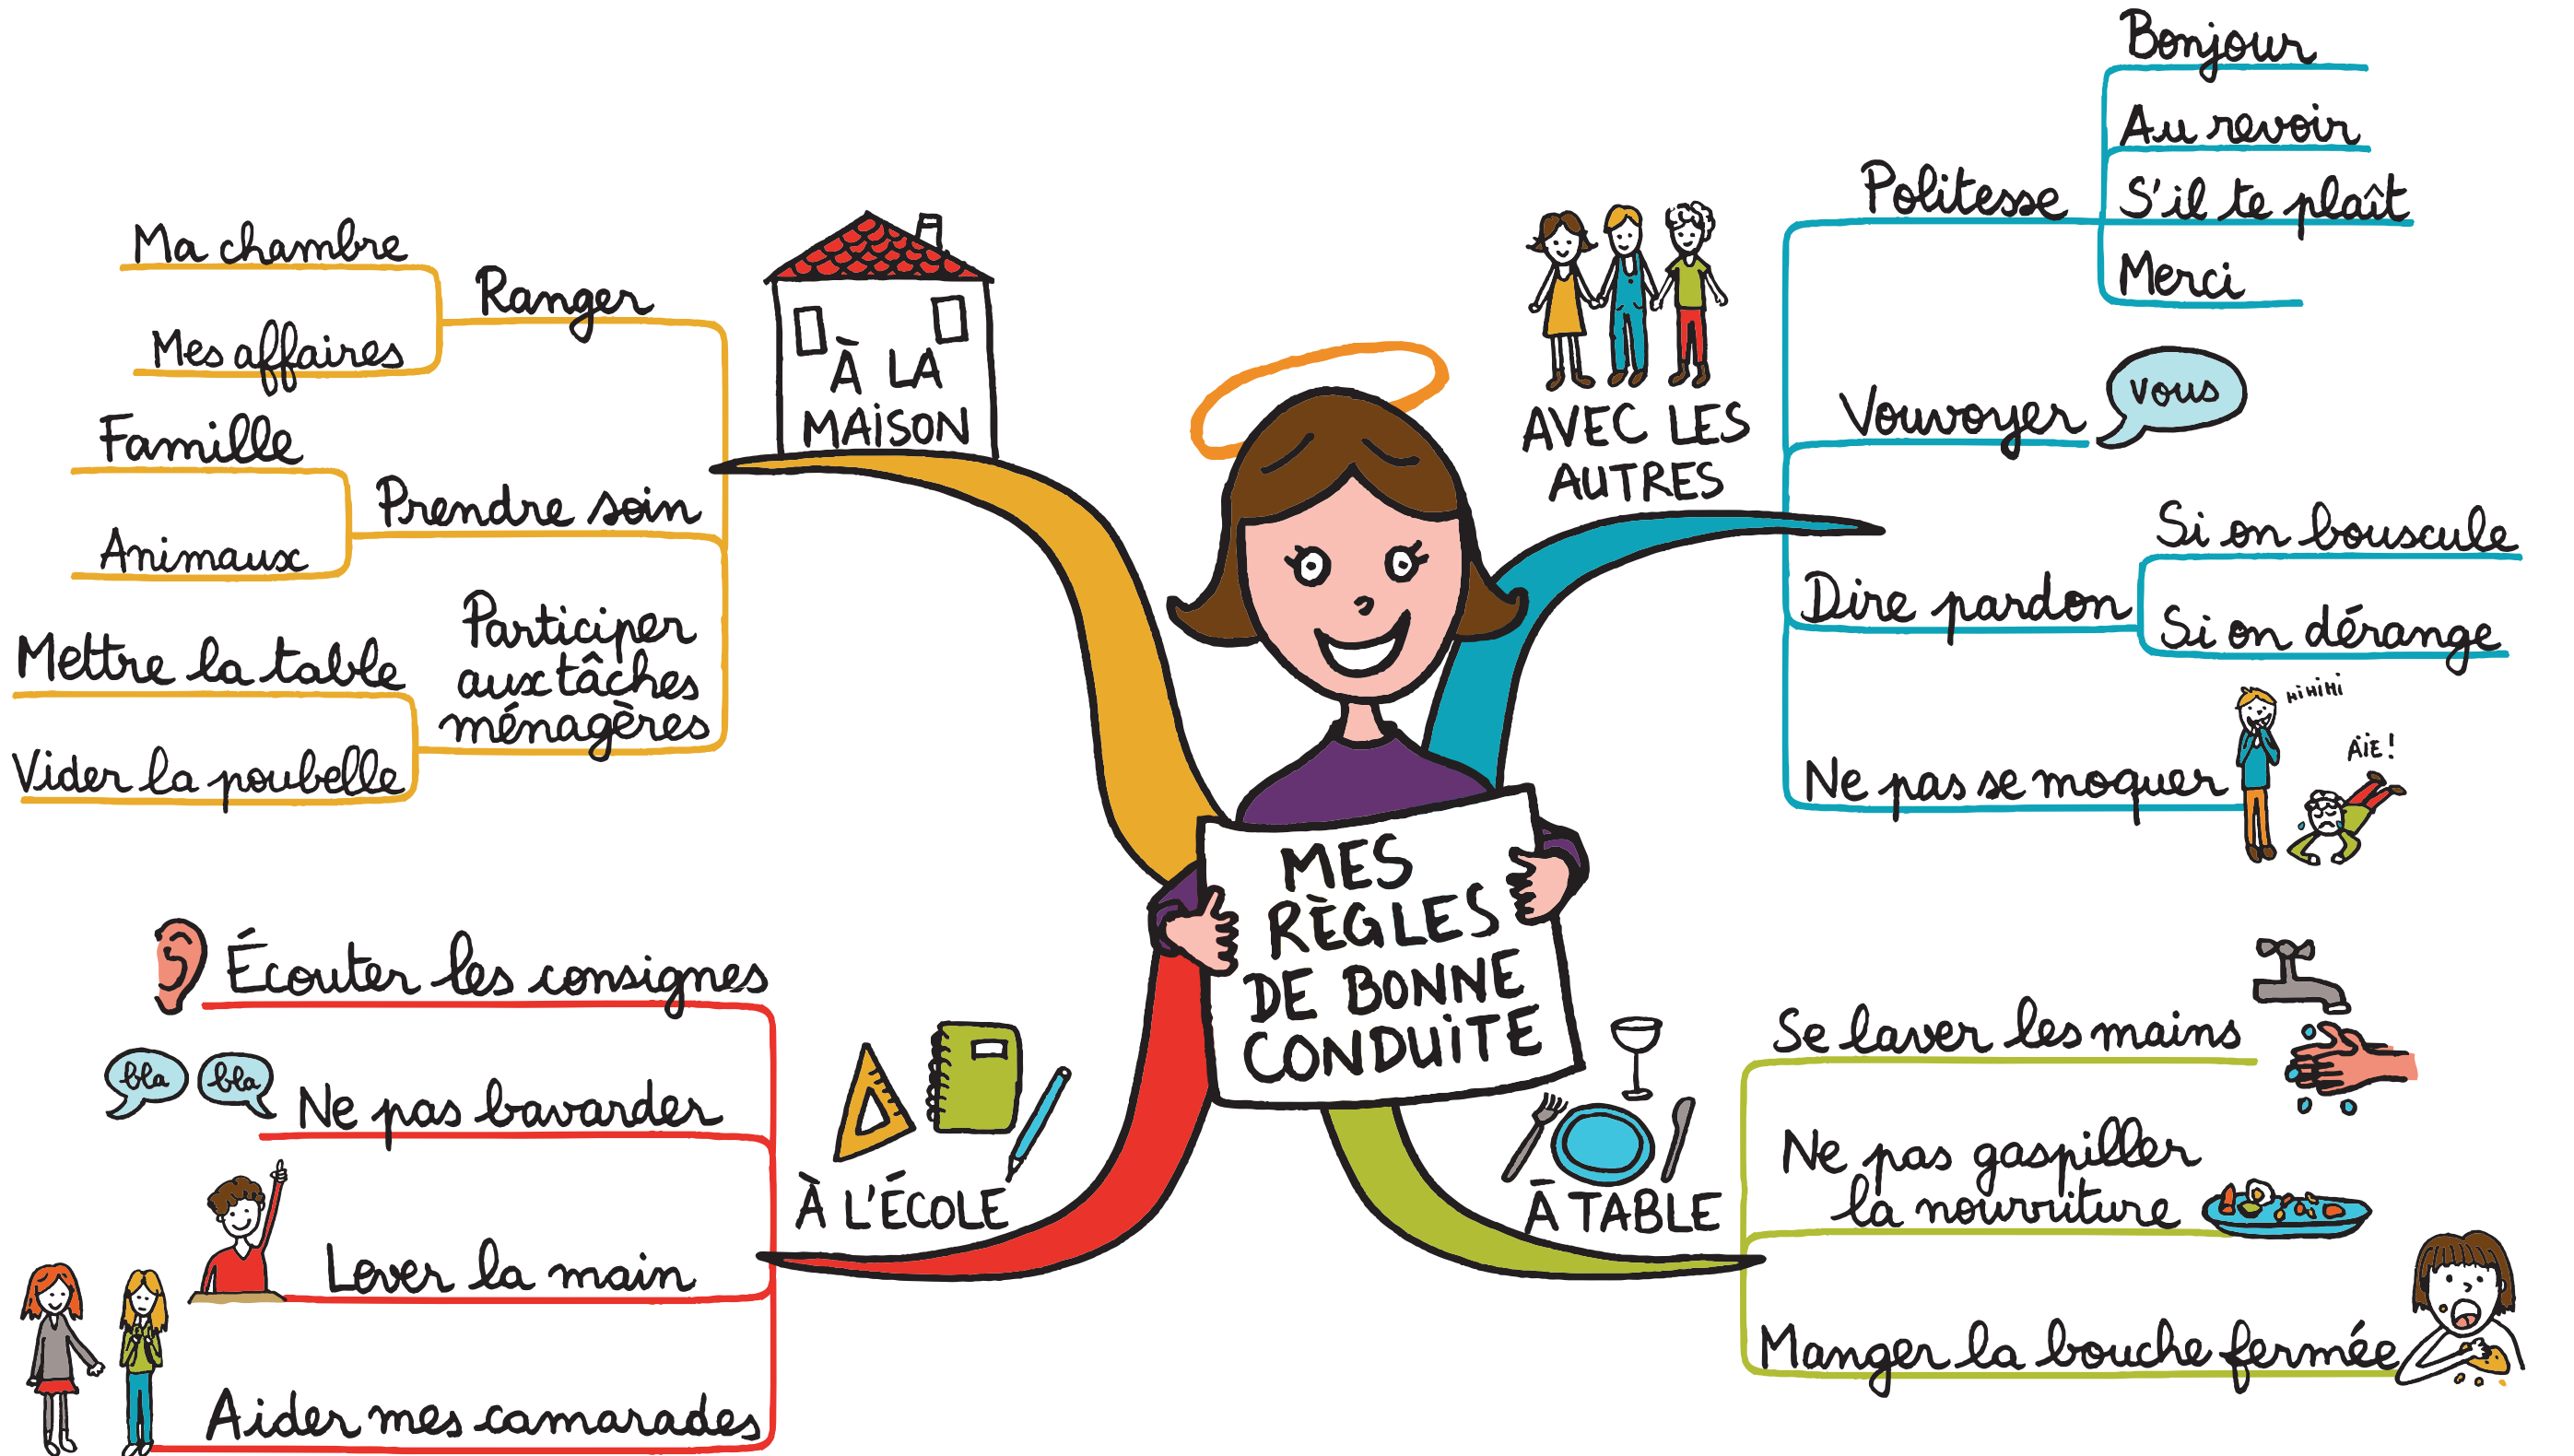 MES
RÈGLES
DE BONNE
CONDUITE
À LA
MAISON
Ranger
Ma chambre
Mes affaires
Prendre soin
Famille
Animaux
Participer
aux tâches
ménagères
Mettre la table
Vider la poubelle
AVEC LES
AUTRES
Politesse
Bonjour
Au revoir
S'il te plaît
Merci
Vouvoyer
vous
Dire pardon
Si on bouscule
Si on dérange
Ne pas se moquer
HiHiHi
AÏE!
À L'ÉCOLE
Écouter les consignes
bla bla
Ne pas bavarder
Lever la main
Aider mes camarades
À TABLE
Se laver les mains
Ne pas gaspiller
la nourriture
Manger la bouche fermée